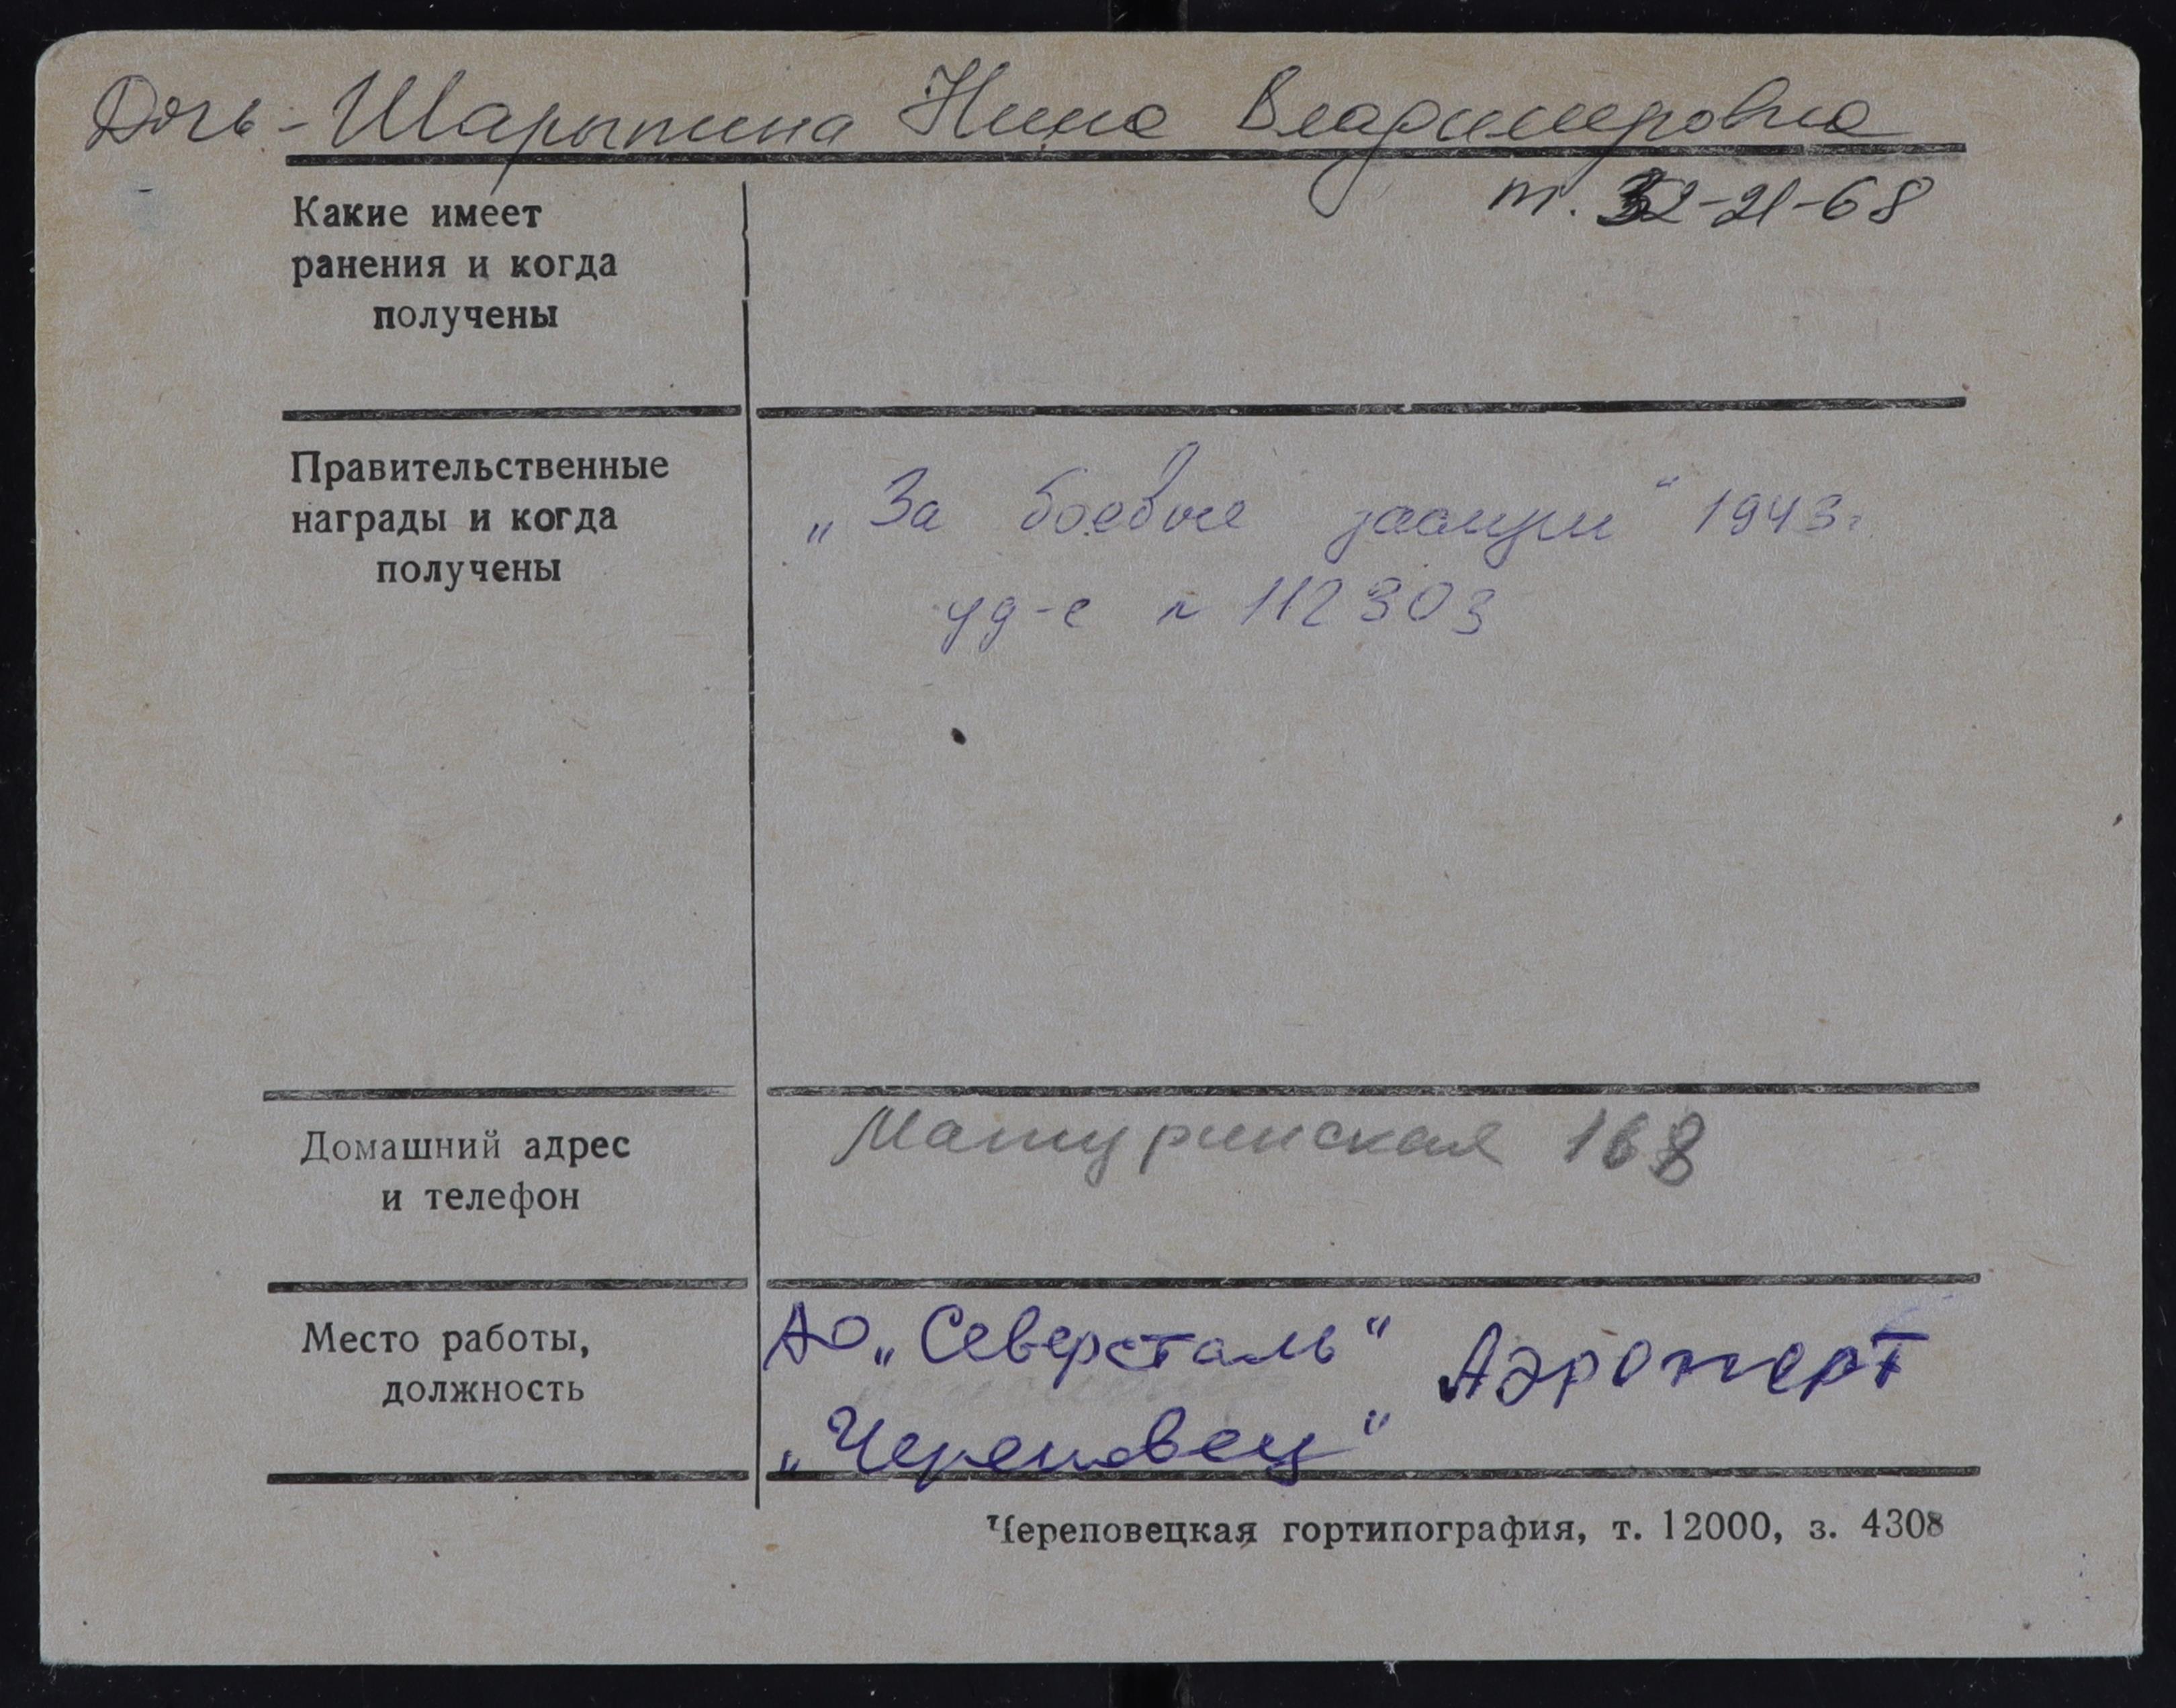 Дочь - Шарыпина Нина Владимировна
т. 32-21-68
Какие имеет
ранения и когда
получены
Правительственные
награды и когда
получены
„За боевые заслуги“ 1943г
уд-е № 112303
Домашний адрес
и телефон
Матуринская 168
Место работы,
должность
АО „Северсталь“ Аэропорт
„Череповец“
Череповецкая гортипография, т. 12000, з. 4308